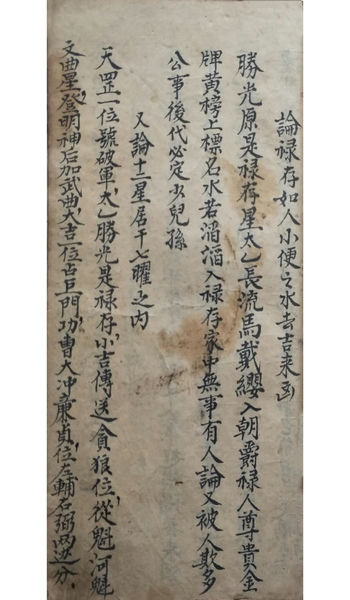 論禄存如人小便之水去吉来凶
勝光原是禄存星太乙長流馬戴纓入朝爵禄人尊貴金
牌黄榜上標名水若滔滔入禄存家中無事有人論又被人欺多
公事後代必定少兒孫
又論十二星居于七曜之内
天罡一位號破軍太乙勝光是禄存小吉傳送貪狼位從魁河魁
文曲星登明神后加武曲大吉一位占巨門功曹大冲亷貞位左輔右弼两邊分